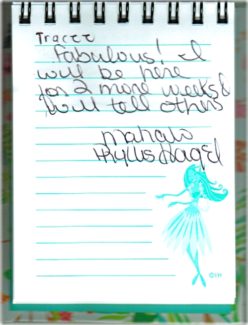 Tracee
Fabulous! I
will be here
for 2 more weeks &
will tell others
mahalo
Phyllis Nagel